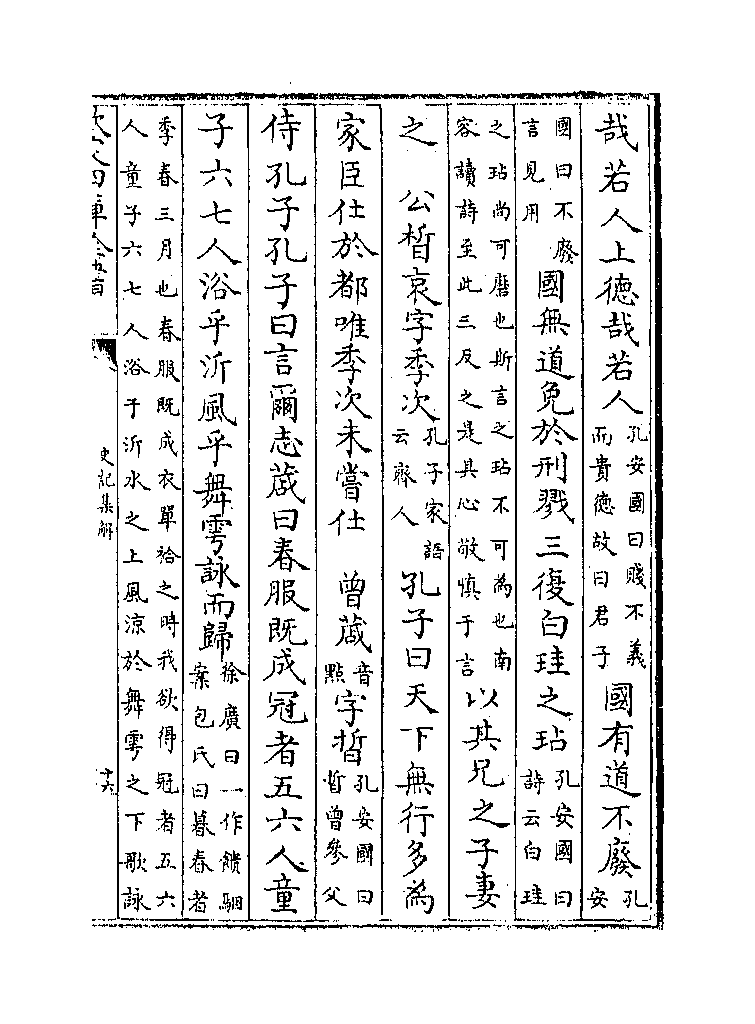 哉若人上德哉若人孔安國曰賤不義而貴德故曰君子國有道不廢孔安
國曰不廢言見用國無道免於刑戮三復白珪之玷孔安國曰詩云白珪
之玷尚可磨也斯言之玷不可為也南容讀詩至此三反之是其心敬慎于言以其兄之子妻
之 公晳哀字季次孔子家語云齊人孔子曰天下無行多為
家臣仕於都唯季次未嘗仕 曾蒧音點字晳孔安國曰晳曾參父
侍孔子孔子曰言爾志蒧曰春服既成冠者五六人童
子六七人浴乎沂風乎舞雩詠而歸徐廣曰一作饋駰案包氏曰暮春者
季春三月也春服既成衣單袷之時我欲得冠者五六人童子六七人浴于沂水之上風涼於舞雩之下歌詠
史記集解
十六